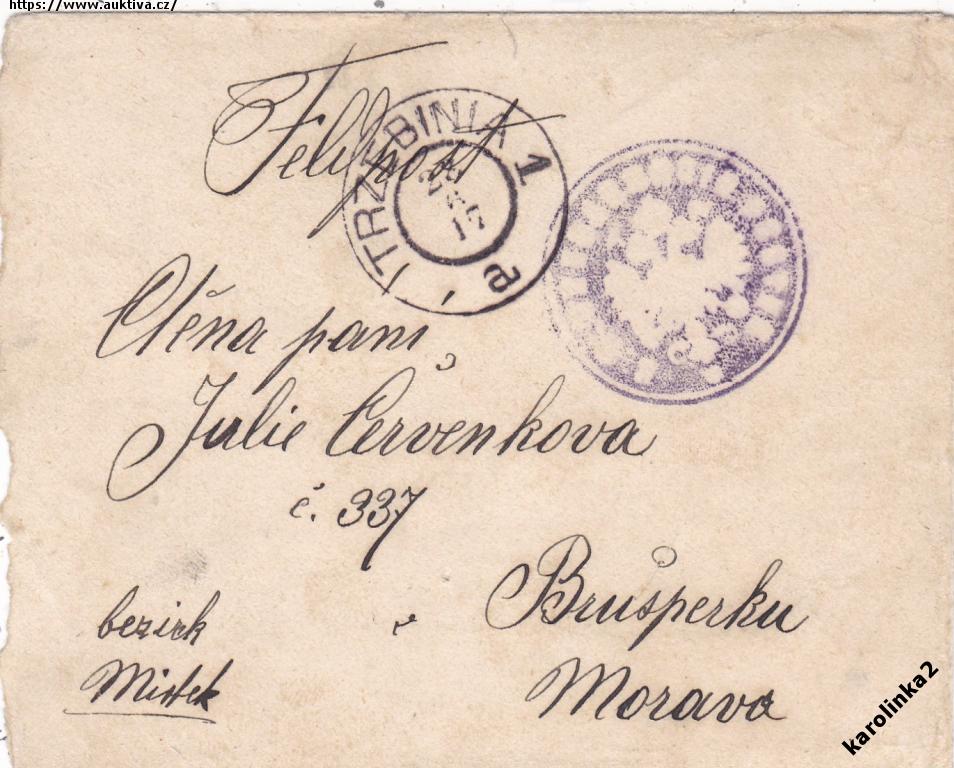 https://www.auktiva.cz/
Feldpost
TRZEBINIA 1
17
Ctěna pani
Julie Červenkova
č. 337
v Brušperku
bezirk
Mistek
Morava
karolinka2